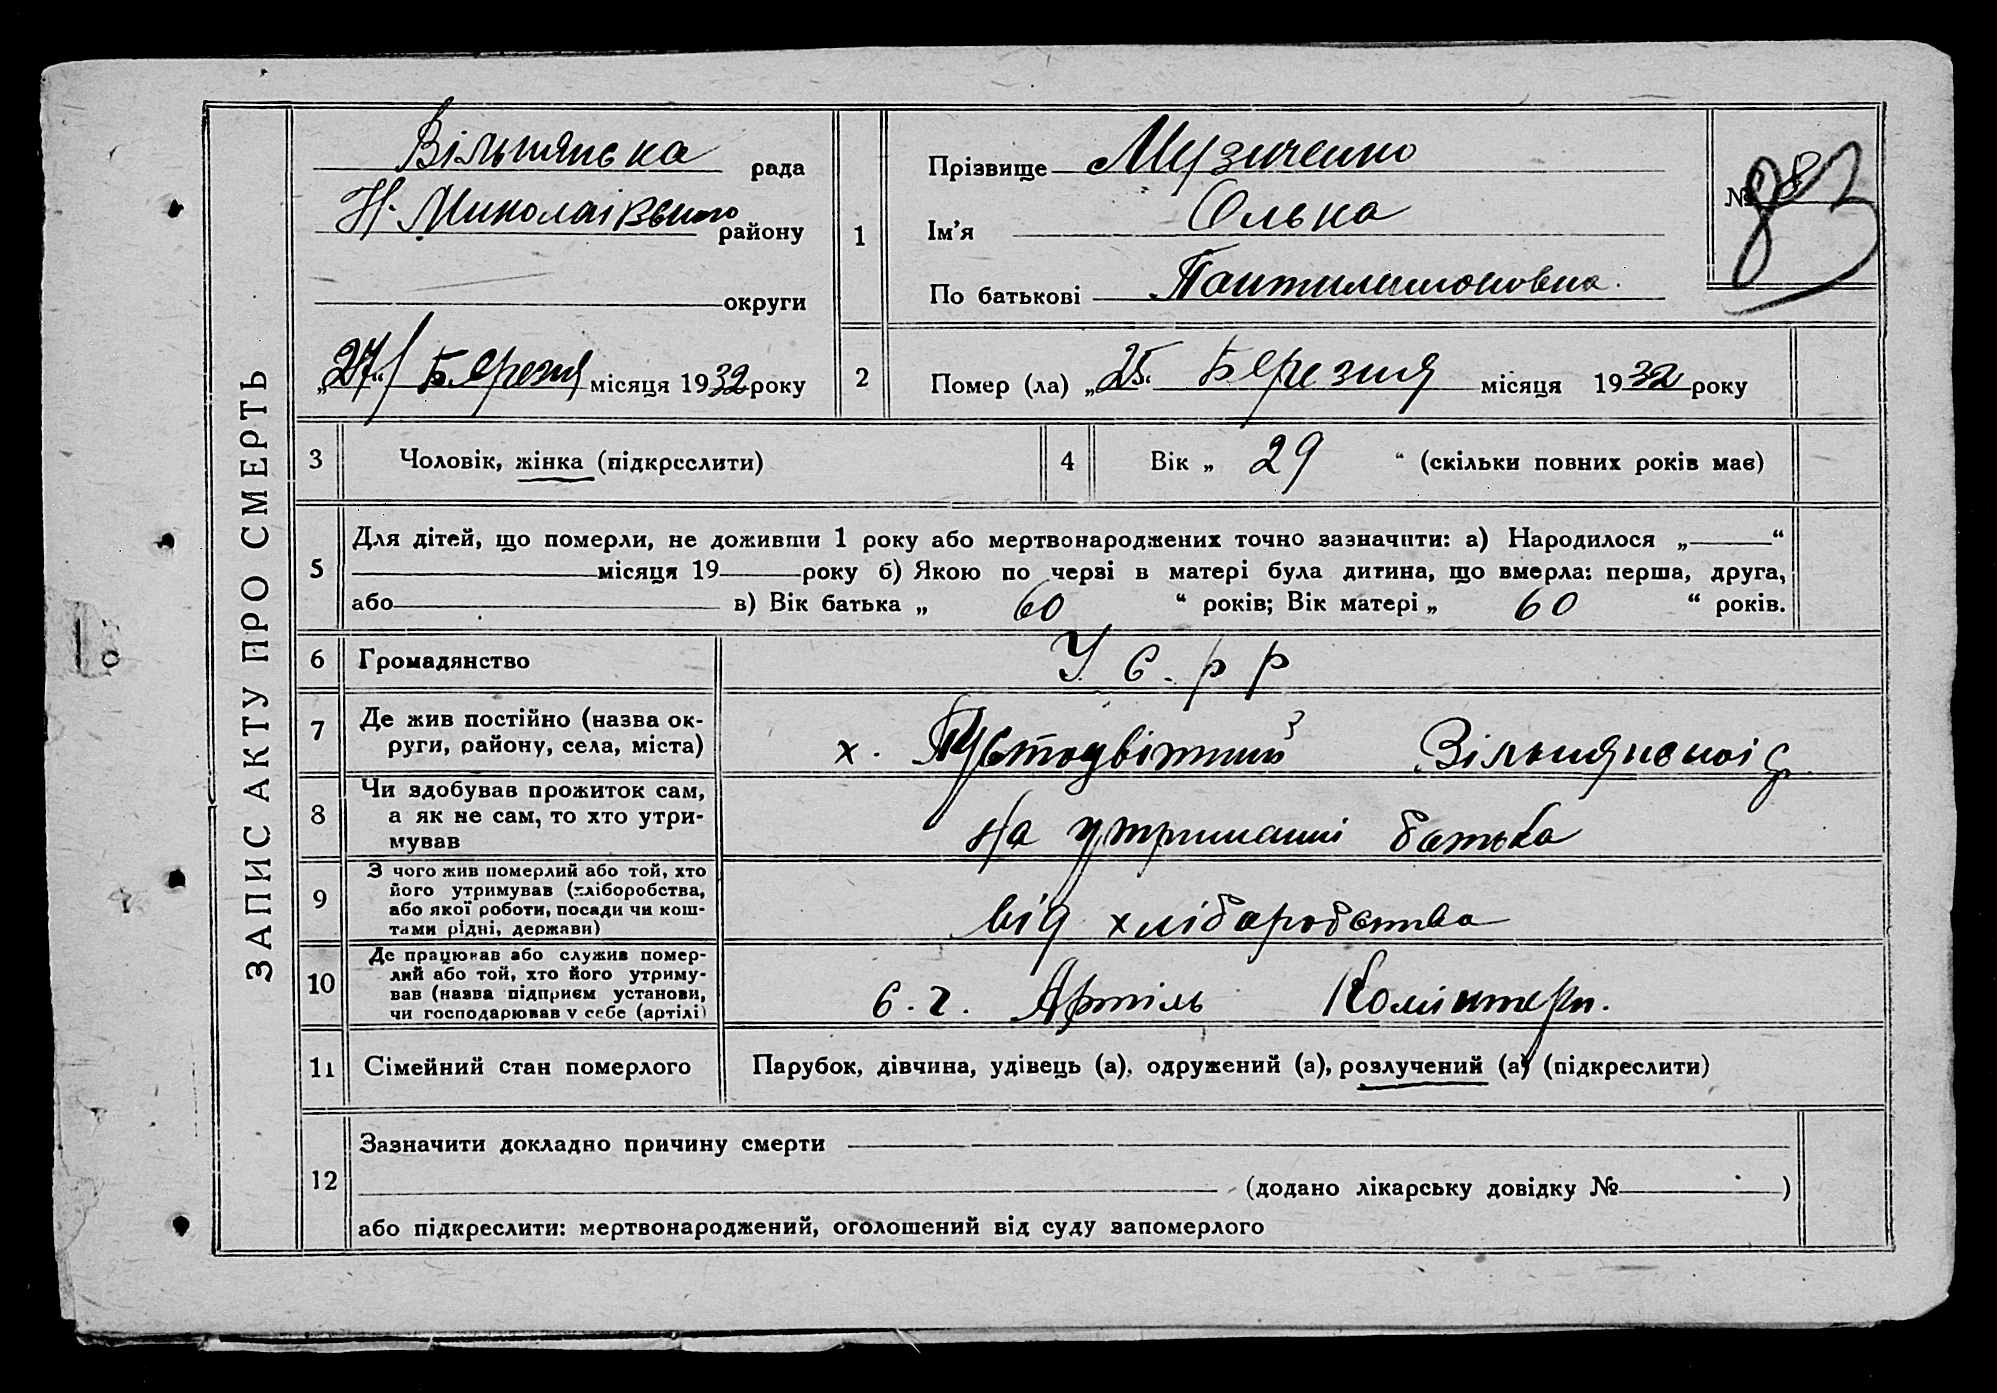 ЗАПИС АКТУ ПРО СМЕРТЬ
Вільнянська рада
Н. Миколаівського району
округи
„27“ Березня місяця 1932 року
1
Прізвище Музиченко
Ім'я Олька
По батькові Пантилимоновна.
№ 83
2
Помер (ла) „25“ Березня місяця 1932 року
3 Чоловік, жінка (підкреслити)
4 Вік „ 29 “ (скільки повних років має)
5
Для дітей, що померли, не доживши 1 року або мертвонароджених точно зазначити: а) Народилося „ “
місяця 19 року б) Якою по черзі в матері була дитина, що вмерла: перша, друга,
або в) Вік батька „ 60 “ років; Вік матері „ 60 “ років.
6 Громадянство У С. р р
7 Де жив постійно (назва ок-
руги, району, села, міста)
х. Вільнянськоі с
8 Чи здобував прожиток сам,
а як не сам, то хто утри-
мував
На утриманні батька
9 З чого жив померлий або той, хто
його утримував (хліборобства,
або якої роботи, посади чи кош-
тами рідні, держави)
від хлібаробства
10 Де працював або служив помер-
лий або той, хто його утриму-
вав (назва підприєм установи,
чи господарював у себе (артілі)
с. г. Артіль Комінтерн.
11 Сімейний стан померлого Парубок, дівчина, удівець (а), одружений (а), розлучений (а) (підкреслити)
12
Зазначити докладно причину смерти
(додано лікарську довідку № )
або підкреслити: мертвонароджений, оголошений від суду запомерлого